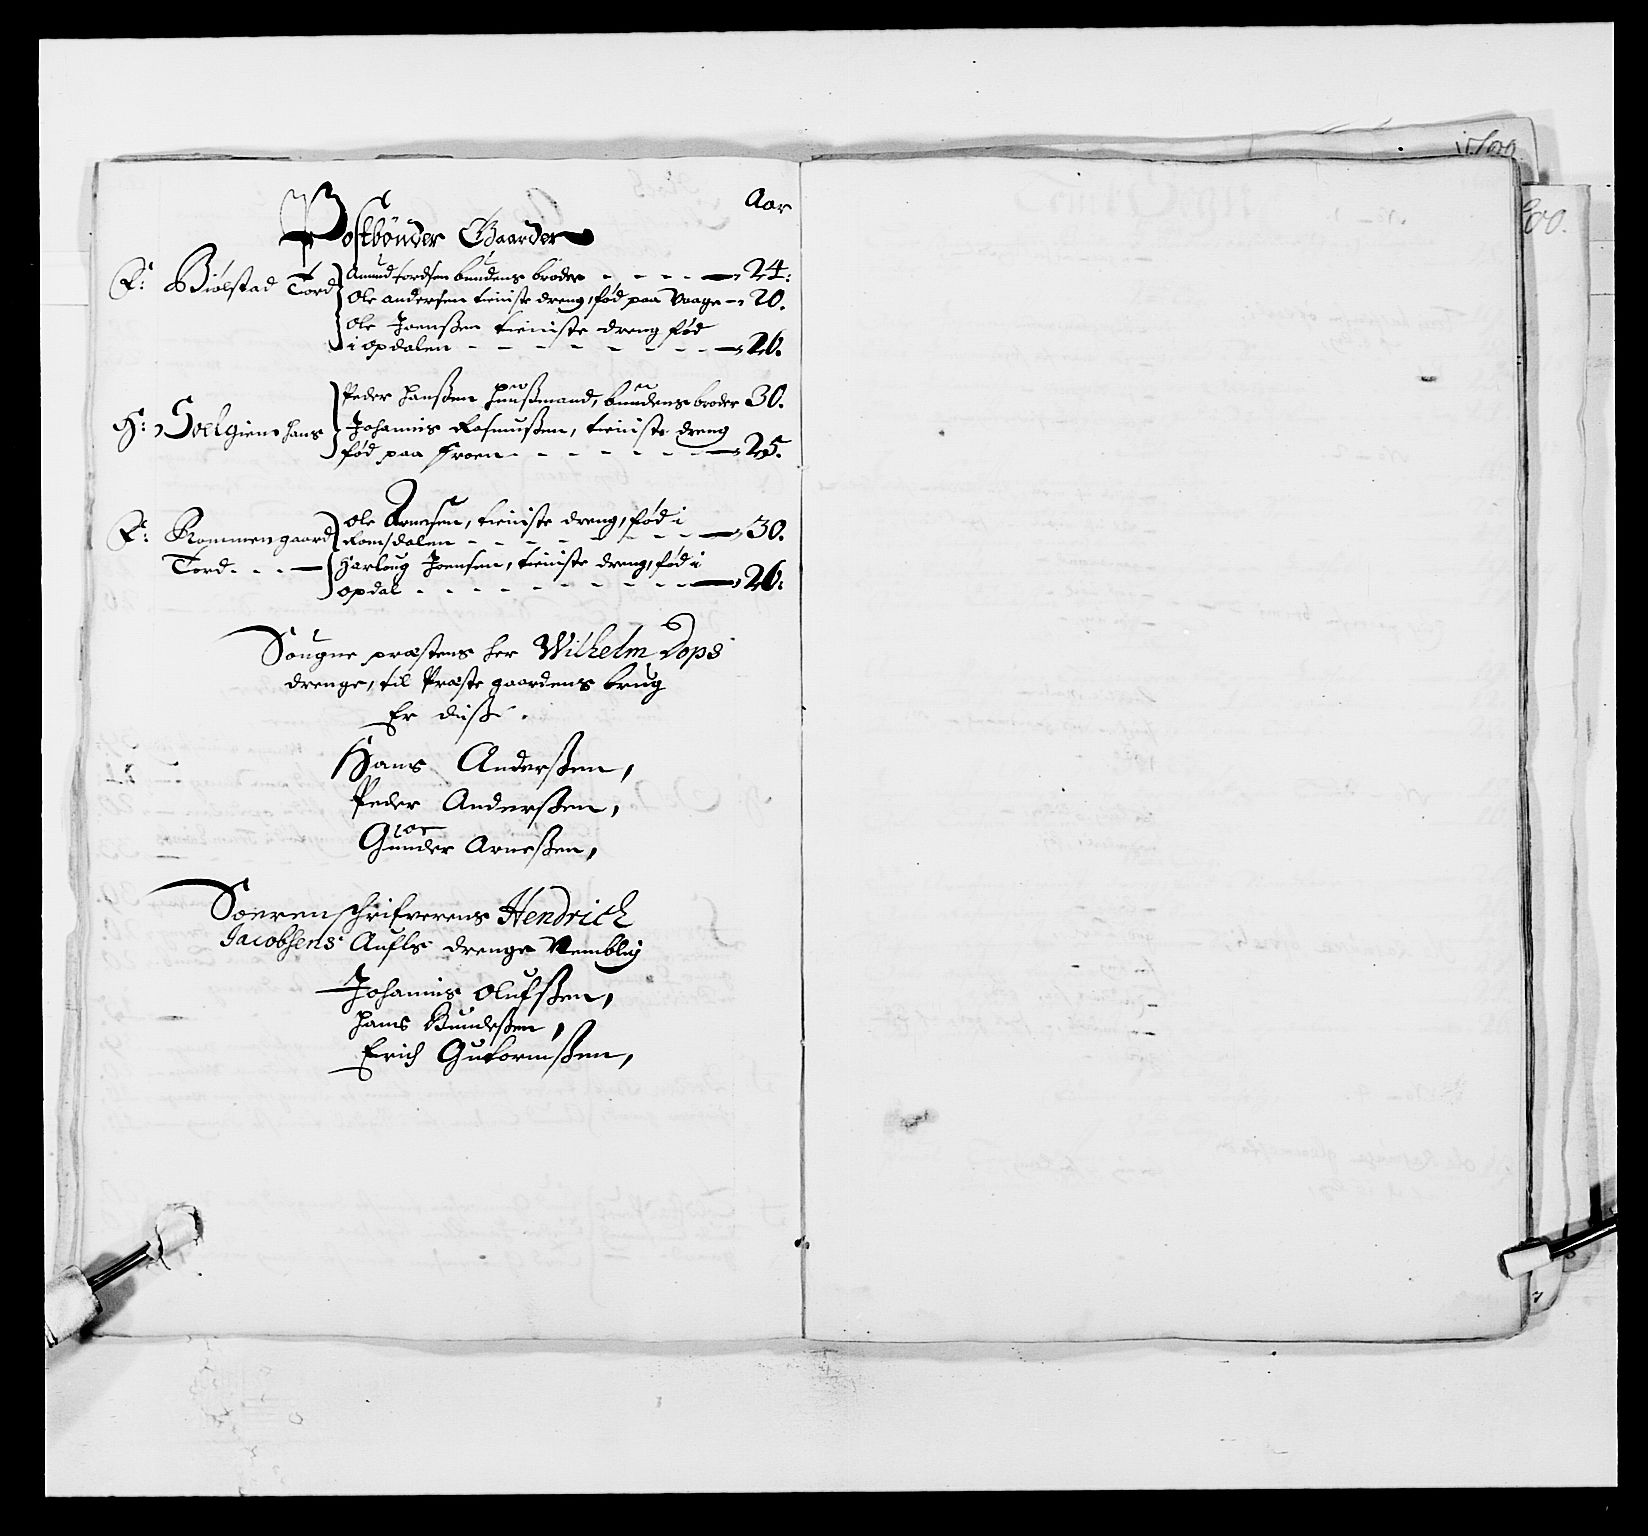 Aar
Postbønder Gaarder
F: Biølstad Tord
Amund tordsen bundens broder - - - - 24:
Ole andersen tieniste dreng, fød paa Vaage - 20.
Ole Joenßen tieniste dreng fød
i opdalen - - - - - - - 26.
H: Soelgien hans
Peder hanßen huußmand, bundens broder 30.
Johannis Rasmußen, tieniste dreng
fød paa Froen - - - - - - 25.
F: Rommengaard
Tord - - -
Ole Arnesen, tieniste dreng, fød i
Romsdalen - - - - - - - 30.
Harloug Joensen, tieniste dreng, fød i
opdal - - - - - - - - - 26:
Sougne præstens her Wilhelm Dops
drenge, til Præste gaardens brug
Er diße.
Hans Anderßen,
Peder Anderßen,
Gunder Arneßen,
Soerenschrifverens Hendrich
Jacobsens Aufls drenge Nemblig
Johannis Olufßen,
hans
Erich Gutormßen,